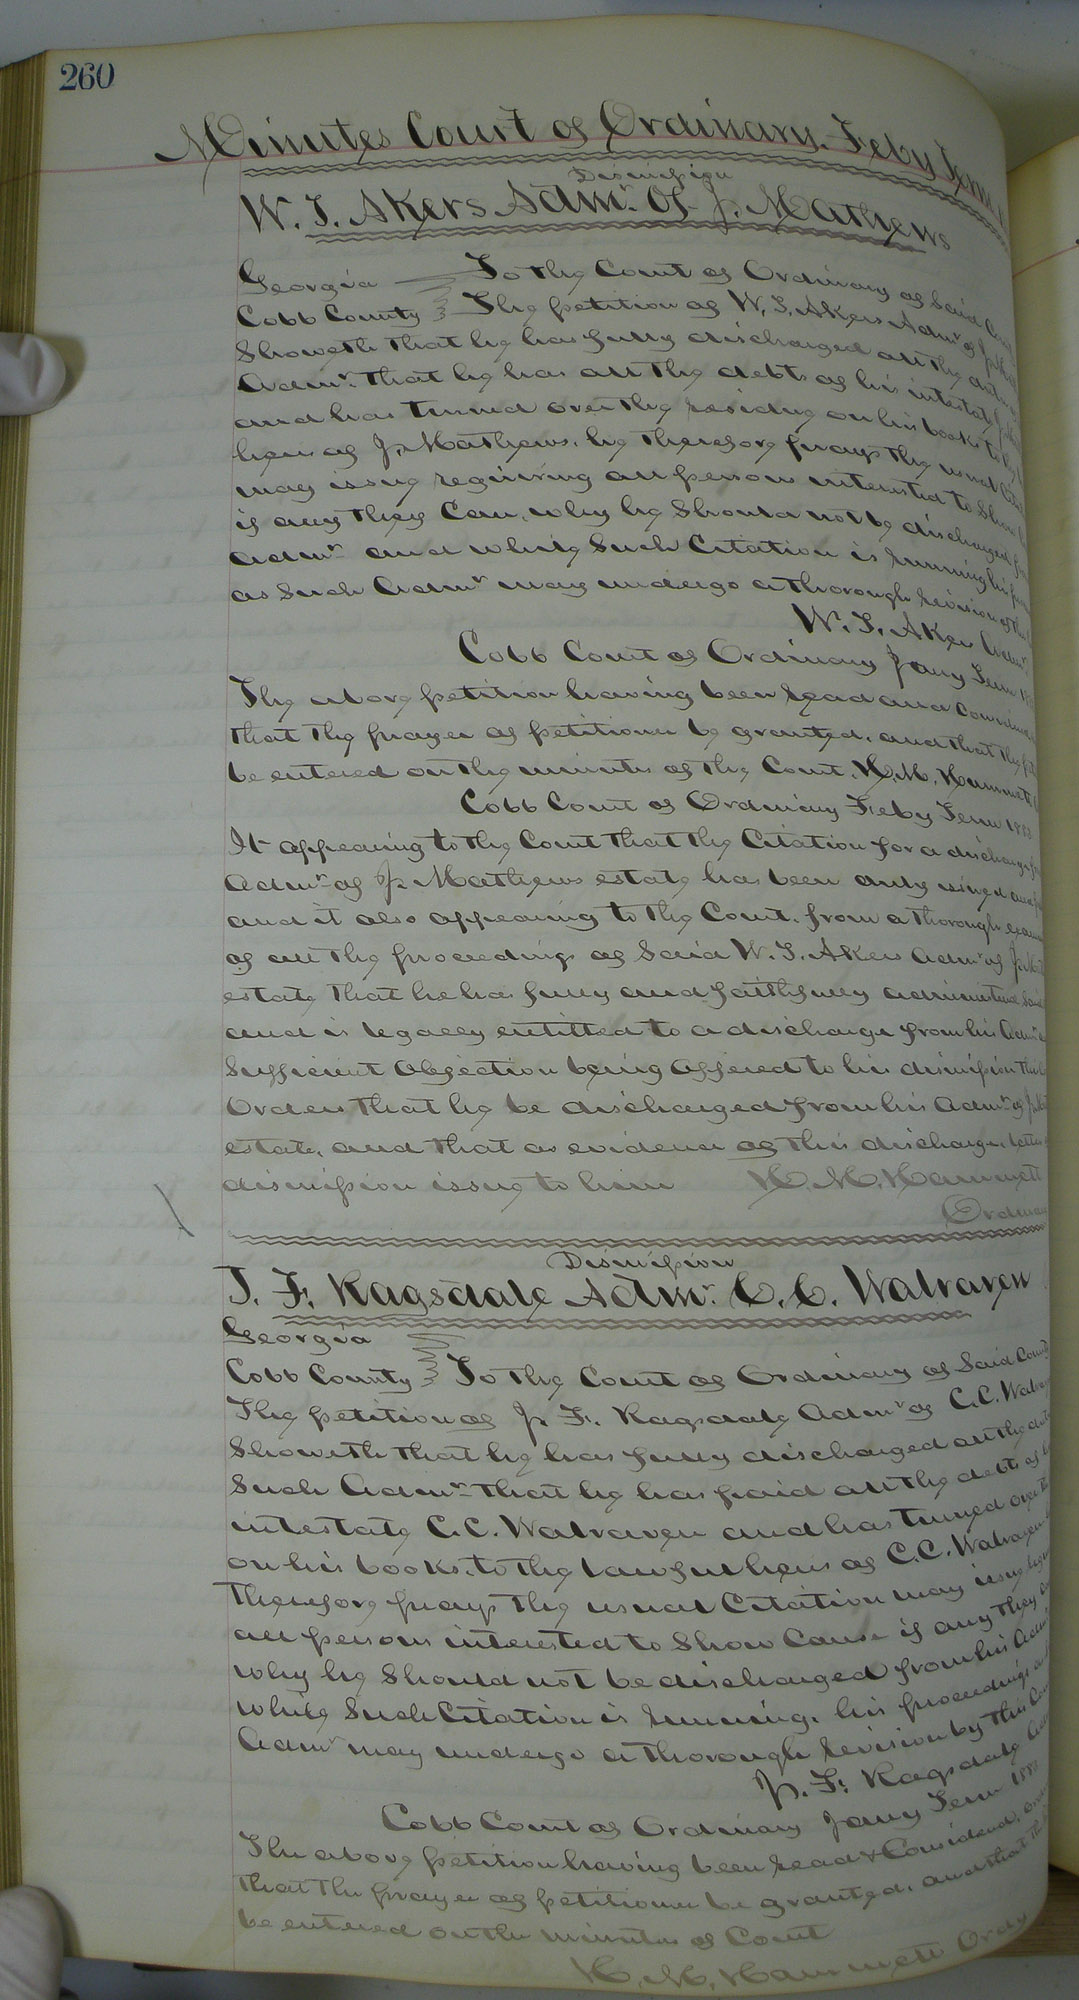 260
Minutes Court of Ordinary. Feby Term
Dismission
W. T. Akers Admr. of J. Mathews
Georgia To the Court of Ordinary of Said
Cobb County The petition of W. T. Akers Admr of
Showeth that he has fully discharged all the
Admr. that he has all the debts of his intestate
and has turned over the residue on his books to the
heirs of J. Mathews. he therefore prays the usual
may issue requiring all persons interested to Show
if any they Can, why he Should not be discharged
Admr and while Such Citation is running his
as Such Admr may undergo a thorough revision of the
W. T. Akers Admr.
Cobb Court of Ordinary Jany Term
The above petition having been read and
that the prayer of petitioner be granted, and that the
be entered on the minutes of the Court. H. M. Hammett
Cobb Court of Ordinary Feby Term
It appearing to the Court that the Citation for a discharge
Admr of J. Mathews estate has been duly issued
and it also appearing to the Court, from a thorough
of all the proceedings of Said W. T. Akers Admr of
estate that he has fully and faithfully administered Said
and is legally entitled to a discharge from his
Sufficient objection being offered to his dismission
Orders that he be discharged from his Admr of
estate, and that as evidence of this discharge, letters
dismission issue to him H. M. Hammett
Ordinary
Dismission
J. F. Ragsdale Admr. C. C. Walraven
Georgia
Cobb County To the Court of Ordinary of Said County
The petition of J. F. Ragsdale Admr of C. C.
Showeth that he has fully discharged all the
Such Admr that he has paid all the debts of
intestate C. C. Walraven and has turned over the
on his books, to the lawful heirs of C. C. Walraven
therefore prays the usual Citation may issue
all persons interested to Show Cause if any they
why he Should not be discharged from his
while Such Citation is running, his proceedings
Admr may undergo a thorough revision by this
J. F. Ragsdale
Cobb Court of Ordinary Jany Term
The above petition having been read & Considered,
that the prayer of petitioner be granted, and that
be entered on the minutes of Court
H. M. Hammett Ordy